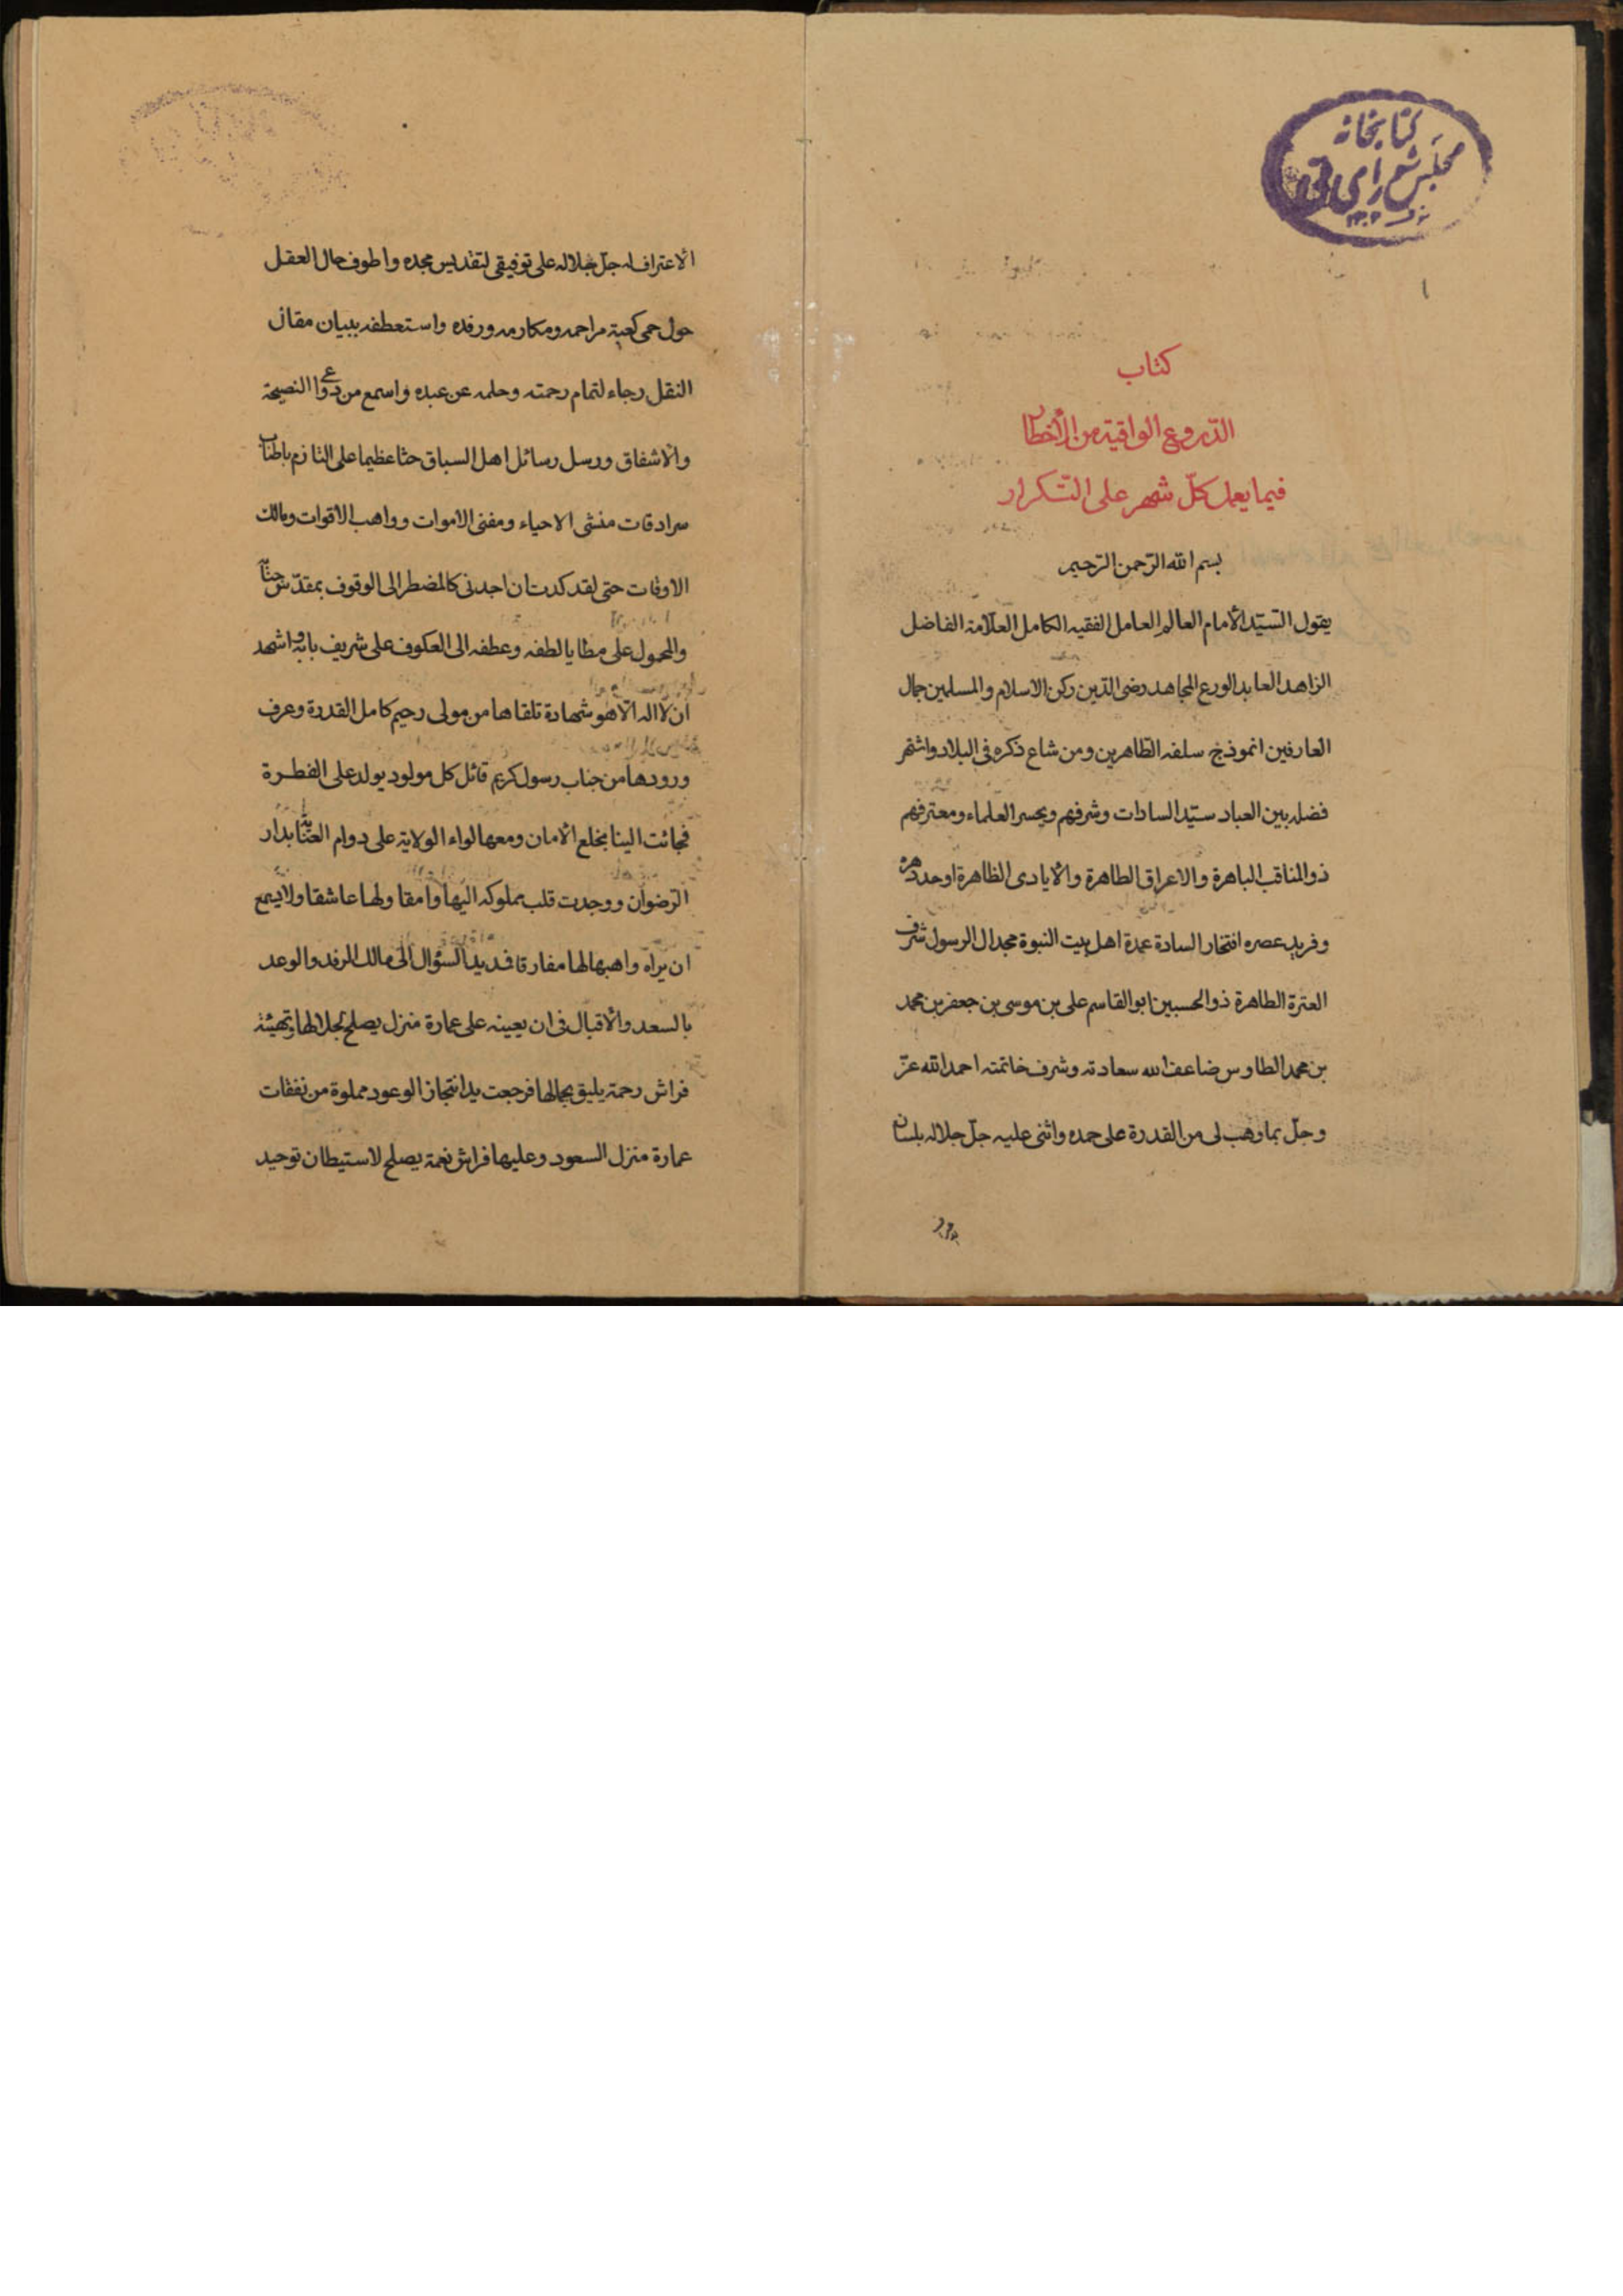 كتابخانه
مجلس شورای ملی
١
كتاب
الدّروع الواقية من الأخطار
فيما يعمل كلّ شهر على التّكرار
بسم الله الرّحمن الرّحيم
يقول السّيّد الأمام العالم العامل الفقيه الكامل العلّامة الفاضل
الزاهد العابد الورع المجاهد رضى الدّين ركن الاسلام والمسلمين جمال
العارفين انموذج سلفه الطّاهرين ومن شاع ذكره فى البلاد واشتهر
فضله بين العباد سيّد السادات وشرفهم وبحسر العلماء ومعترفهم
ذو المناقب الباهرة والاعراق الطاهرة والأيادى الظاهرة اوحد دهره
وفريد عصره افتخار السادة عمدة اهل بيت النبوة مجد ال الرسول شرف
العترة الطاهرة ذو الحسبين ابو القاسم على بن موسى بن جعفر بن محمد
بن محمد الطاوس ضاعف الله سعادته وشرف خاتمته احمد الله عزّ
وجلّ بما وهب لى من القدرة على حمده واثنى عليه جلّ جلاله بلسان
الاعتراف له جلّ جلاله على توفيقى لتقديس مجده واطوف بحال العقل
حول حمى كعبة مراحمه ومكارمه ورفده واستعطفه ببيان مقال
النقل رجاء لتمام رحمته وحلمه عن عبده واسمع من دواعى النصيحة
والاشفاق ورسل رسائل اهل السباق حثا عظيما على التلازم باطناب
سرادقات منشى الاحياء ومفنى الاموات وواهب الاقوات ومالك
الاوقات حتى لقد كدت ان اجدنى كالمضطر الى الوقوف بمقدّس جنابه
والمحمول على مطايا لطفه وعطفه الى العكوف على شريف بابه واشهد
ان لا اله الّا هو شهادة تلقاها من مولى رحيم كامل القدرة وعرف
ورودها من جناب رسول كريم قائل كل مولود يولد على الفطرة
فجائت الينا بخلع الأمان ومعها لواء الولاية على دوام العناية بدار
الرّضوان ووجدت قلب مملوكه اليها وامقا ولها عاشقا ولا يسمع
ان يراه واهبها لها مفارقا فمد يد السؤال الى مالك الرفد والوعد
بالسعد والأقبال فى ان يعينه على عمارة منزل يصلح لجلالها وتهيئة
فراش رحمة يليق بجمالها فرجعت يد انتجاز الوعود مملوة من نفقات
عمارة منزل السعود وعليها فراش نعمة يصلح لاستيطان توحيد